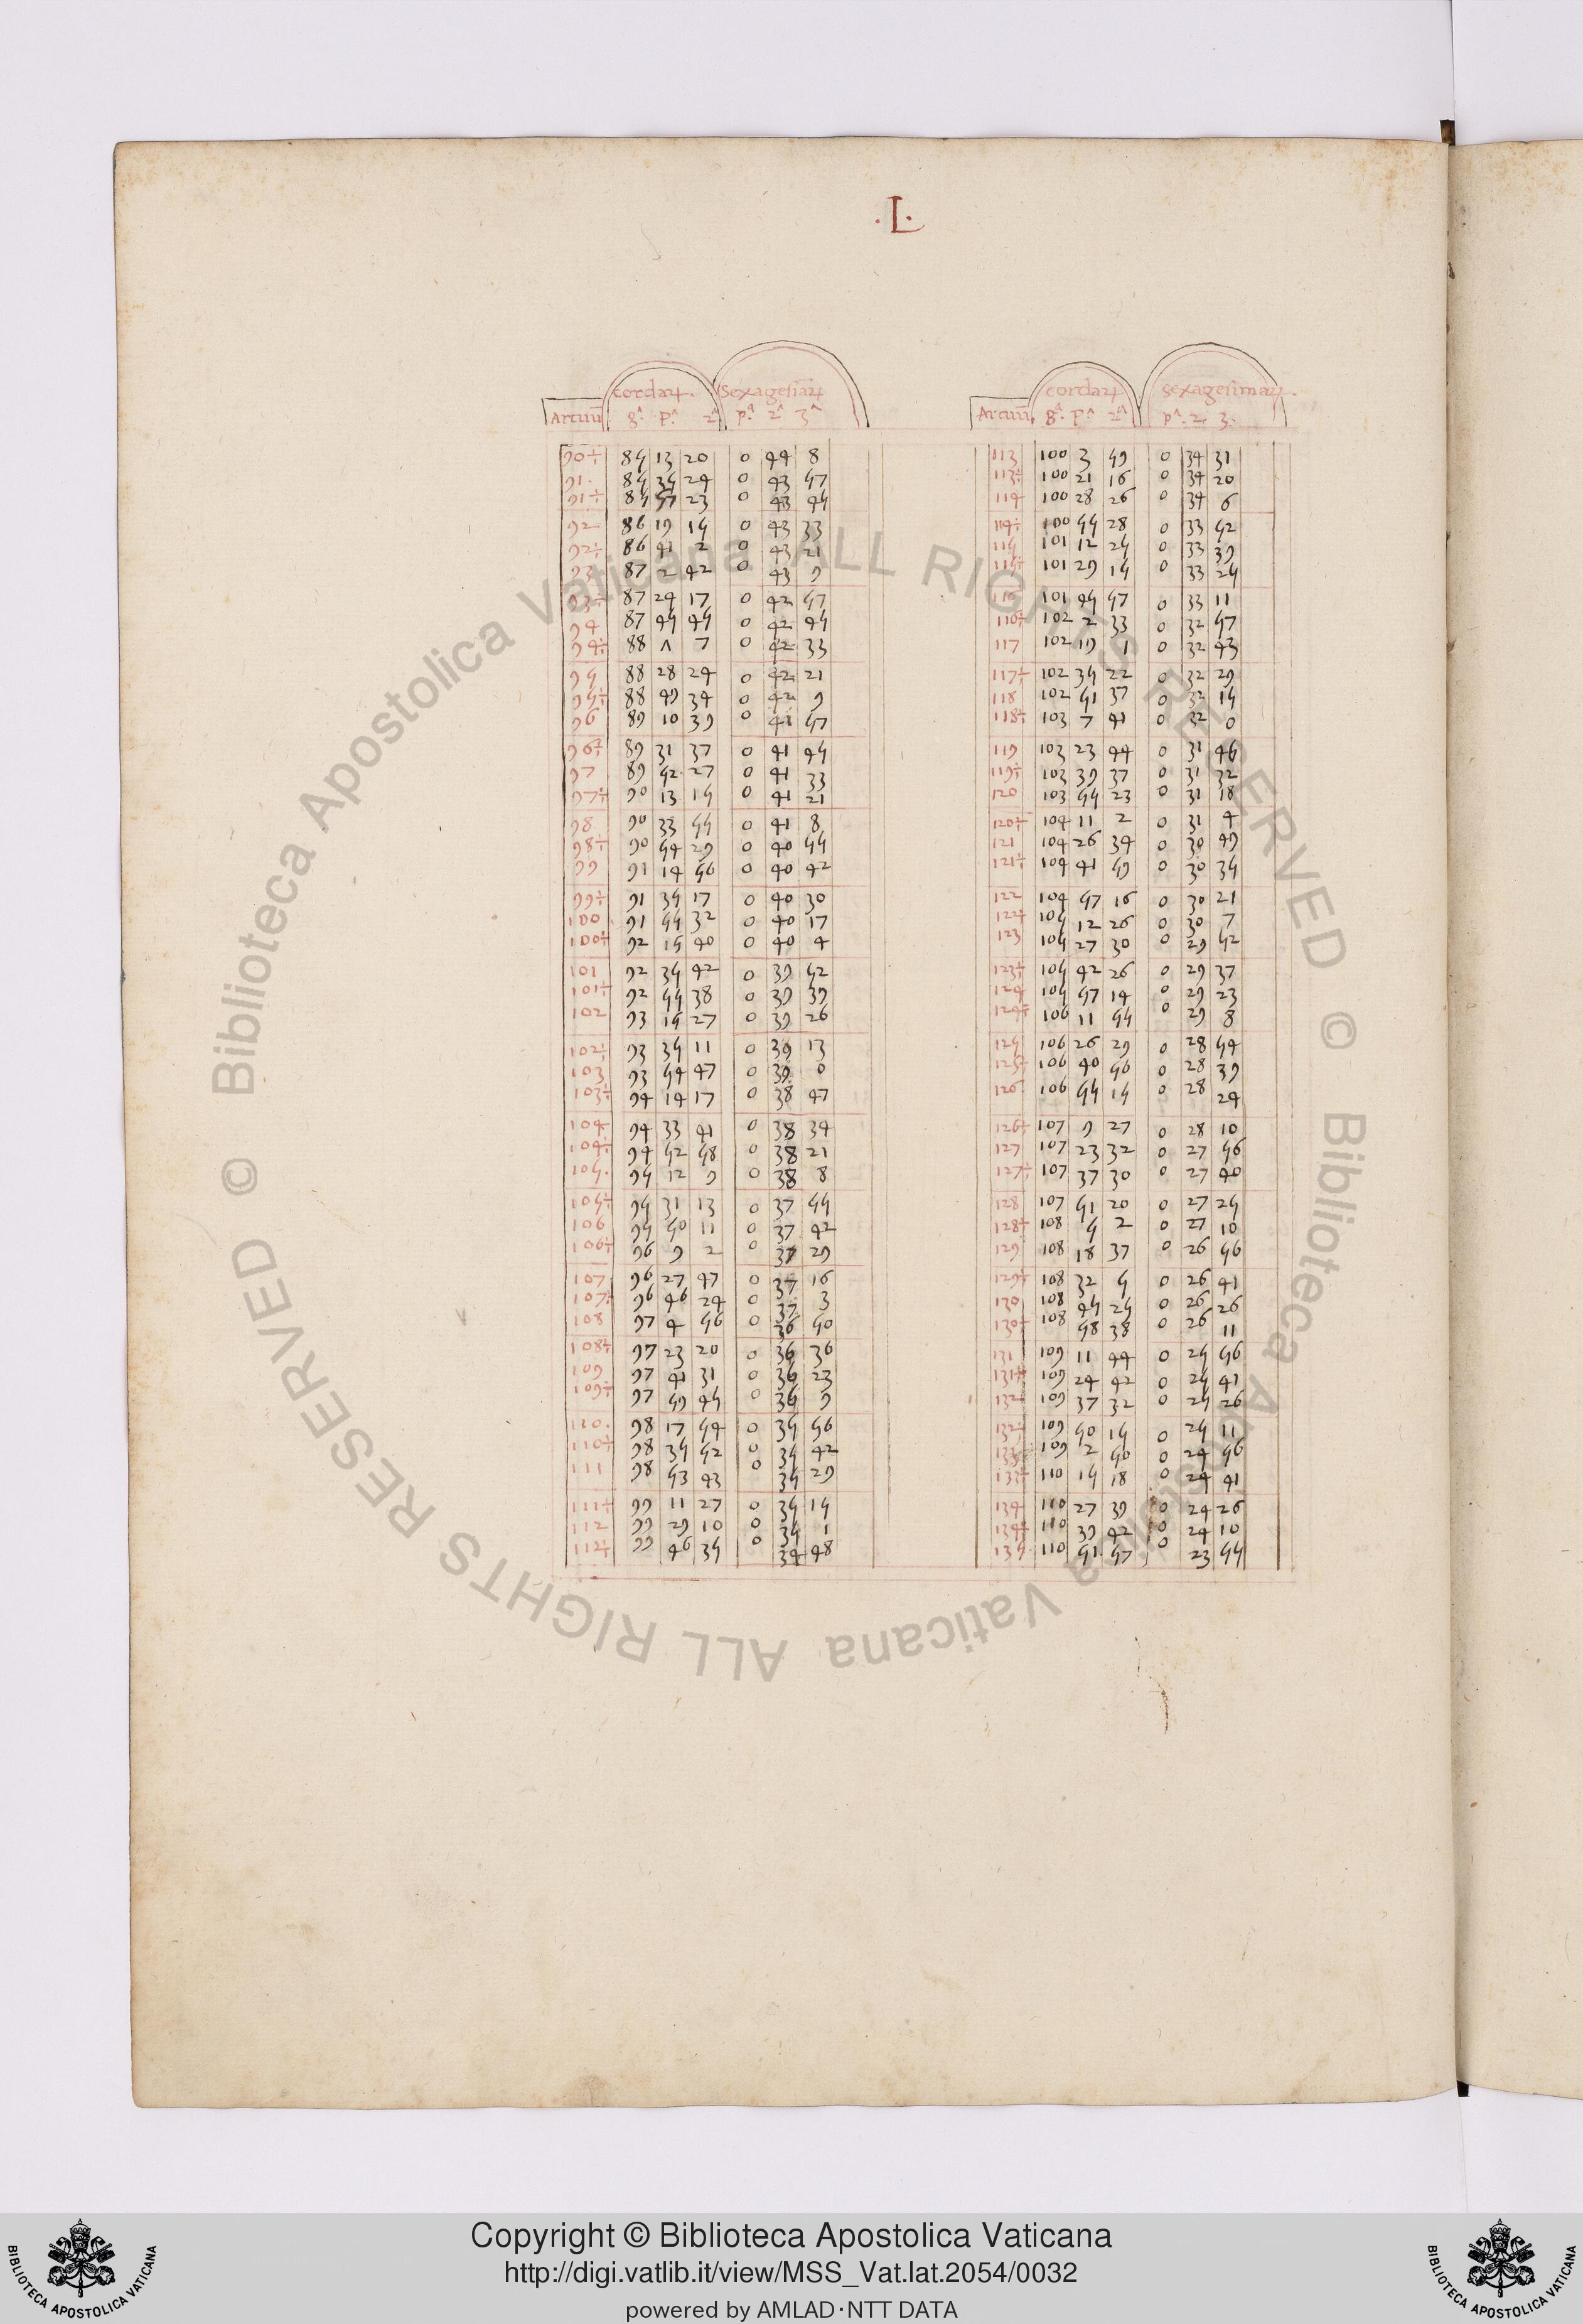 .L.
Arcuū cordaꝝ. sexagesiaꝝ
gᵃ. pᵃ. 2ᵃ pᵃ. 2ᵃ 3ᵃ
90½ 85 13 20 0 44 8
91. 85 35 24 0 43 57
91½ 85 57 23 0 43 45
92 86 19 15 0 43 33
92½ 86 41 2 0 43 21
93 87 2 42 0 43 9
93½ 87 24 17 0 42 57
94 87 45 45 0 42 45
94½ 88 Λ 7 0 42 33
95 88 28 24 0 42 21
95½ 88 49 34 0 42 9
96 89 10 39 0 41 57
96½ 89 31 37 0 41 45
97 89 52 27 0 41 33
97½ 90 13 15 0 41 21
98 90 33 55 0 41 8
98½ 90 54 29 0 40 55
99 91 14 56 0 40 42
99½ 91 35 17 0 40 30
100 91 55 32 0 40 17
100½ 92 15 40 0 40 4
101 92 35 42 0 39 52
101½ 92 55 38 0 39 39
102 93 15 27 0 39 26
102½ 93 35 11 0 39 13
103 93 54 47 0 39 0
103½ 94 14 17 0 38 47
104 94 33 41 0 38 34
104½ 94 52 58 0 38 21
105. 95 12 9 0 38 8
105½ 95 31 13 0 37 55
106 95 50 11 0 37 42
106½ 96 9 2 0 37 29
107 96 27 47 0 37 16
107½ 96 46 24 0 37 3
108 97 4 56 0 36 50
108½ 97 23 20 0 36 36
109 97 41 31 0 36 23
109½ 97 59 45 0 36 9
110. 98 17 54 0 35 56
110½ 98 35 52 0 35 42
111 98 53 43 0 35 29
111½ 99 11 27 0 35 15
112 99 29 10 0 35 1
112½ 99 46 35 0 34 48
Arcuū cordaꝝ sexagesimaꝝ.
gᵃ. pᵃ. 2ᵃ pᵃ. 2. 3.
113 100 3 59 0 34 31
113½ 100 21 16 0 34 20
114 100 28 26 0 34 6
114½ 100 55 28 0 33 52
115 101 12 25 0 33 39
115½ 101 29 15 0 33 25
116 101 45 57 0 33 11
116½ 102 2 33 0 32 57
117 102 19 1 0 32 43
117½ 102 35 22 0 32 29
118 102 51 37 0 32 15
118½ 103 7 41 0 32 0
119 103 23 44 0 31 46
119½ 103 39 37 0 31 32
120 103 55 23 0 31 18
120½ 104 11 2 0 31 4
121 104 26 34 0 30 49
121½ 104 41 59 0 30 35
122 104 57 16 0 30 21
122½ 105 12 26 0 30 7
123 105 27 30 0 29 52
123½ 105 42 26 0 29 37
124 105 57 14 0 29 23
124½ 106 11 55 0 29 8
125 106 26 29 0 28 54
125½ 106 40 56 0 28 39
126. 106 55 15 0 28 24
126½ 107 9 27 0 28 10
127 107 23 32 0 27 56
127½ 107 37 30 0 27 40
128 107 51 20 0 27 25
128½ 108 5 2 0 27 10
129 108 18 37 0 26 56
129½ 108 32 5 0 26 41
130 108 45 25 0 26 26
130½ 108 58 38 0 26 11
131 109 11 44 0 25 56
131½ 109 24 42 0 25 41
132 109 37 32 0 25 26
132½ 109 50 15 0 25 11
133 109 2 50 0 24 56
133½ 110 15 18 0 24 41
134 110 27 39 0 24 26
134½ 110 39 42 0 24 10
135. 110 51 57 0 23 55
© Biblioteca Apostolica Vaticana ALL RIGHTS RESERVED © Biblioteca Apostolica Vaticana ALL RIGHTS RESERVED
BIBLIOTECA APOSTOLICA VATICANA
Copyright © Biblioteca Apostolica Vaticana
http://digi.vatlib.it/view/MSS_Vat.lat.2054/0032
powered by AMLAD·NTT DATA
BIBLIOTECA APOSTOLICA VATICANA